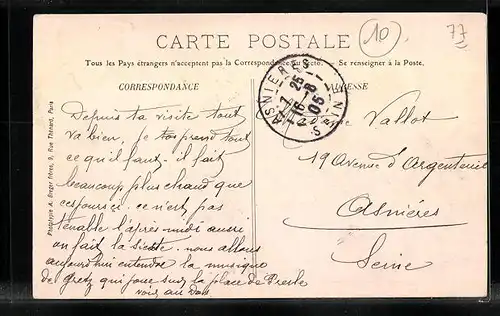 10
77
CARTE POSTALE
Tous les Pays étrangers n'acceptent pas la Correspondance au recto. — Se renseigner à la Poste.
CORRESPONDANCE
ADRESSE
ASNIERES
7 25
16 - 8
05
SEINE
Phototypie A. Breger frères, 9, Rue Thénard, Paris
Depuis ta visite tout
va bien, je tout
ce qu'il faut - il fait
beaucoup plus chaud que
ces jours ci. ce n'est pas
tenable l'après-midi aussi
on fait la sieste. nous allons
aujourd'hui entendre la musique
de Gretz qui joue sur la place de Presle
Vallot
19 Avenue d'Argenteuil
Asnières
Seine